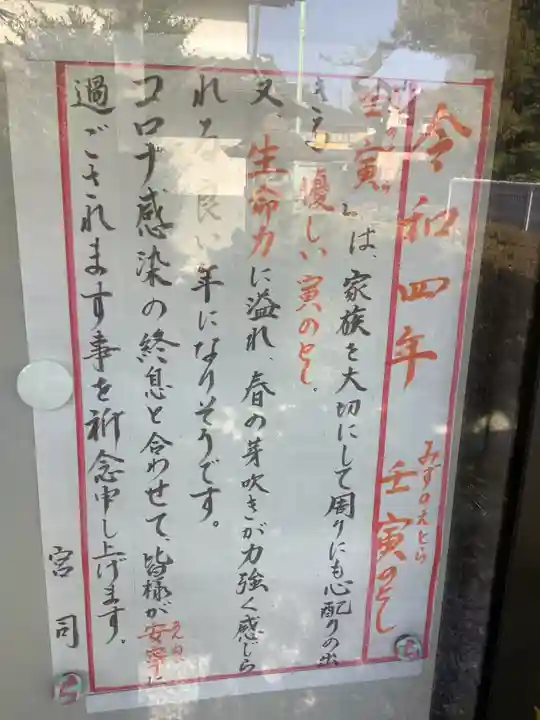 令和四年 壬寅のとし
みずのえとら
壬寅とは、家族を大切にして周りにも心配りの出
来る優しい寅のとし。
又、生命力に溢れ、春の芽吹きが力強く感じら
れる良い年になりそうです。
コロナ感染の終息と合わせて、皆様が安寧に
過ごされます事を祈念申し上げます。
宮司